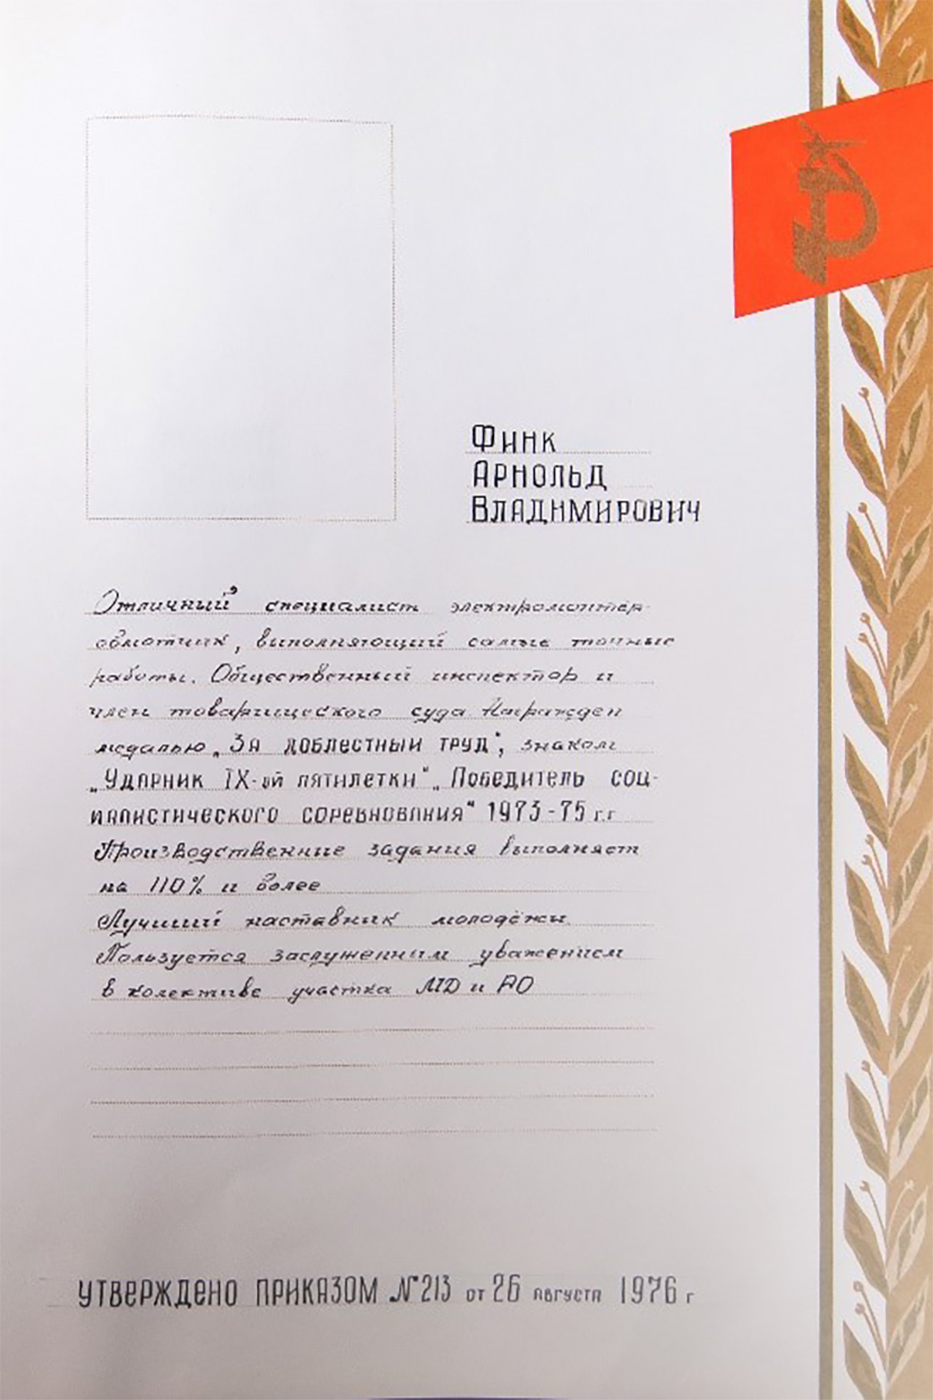 Финк
Арнольд
Владимирович
Отличный специалист электромонтёр-
обмотчик, выполняющий самые точные
работы. Общественный инспектор и
член товарищеского суда. Награжден
медалью „За доблестный труд", знаком
„Ударник IX-ой пятилетки" „Победитель соц-
иалистического соревнования" 1973-75 г.г
Производственные задания выполняет
на 110% и более
Лучший наставник молодёжи.
Пользуется заслуженным уважением
в колективе участка МД и АО
УТВЕРЖДЕНО ПРИКАЗОМ №213 от 26 августа 1976 г